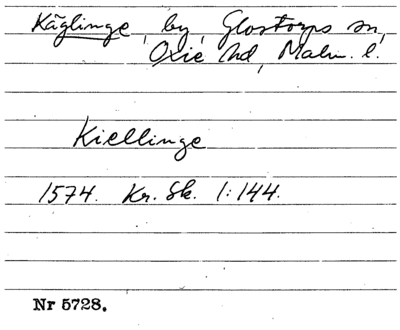 Käglinge, by, Glostorps sn,
Oxie hd, Malm. l.
Kiellinge
1574. Kr. Sk. 1:144.
Nr 5728.